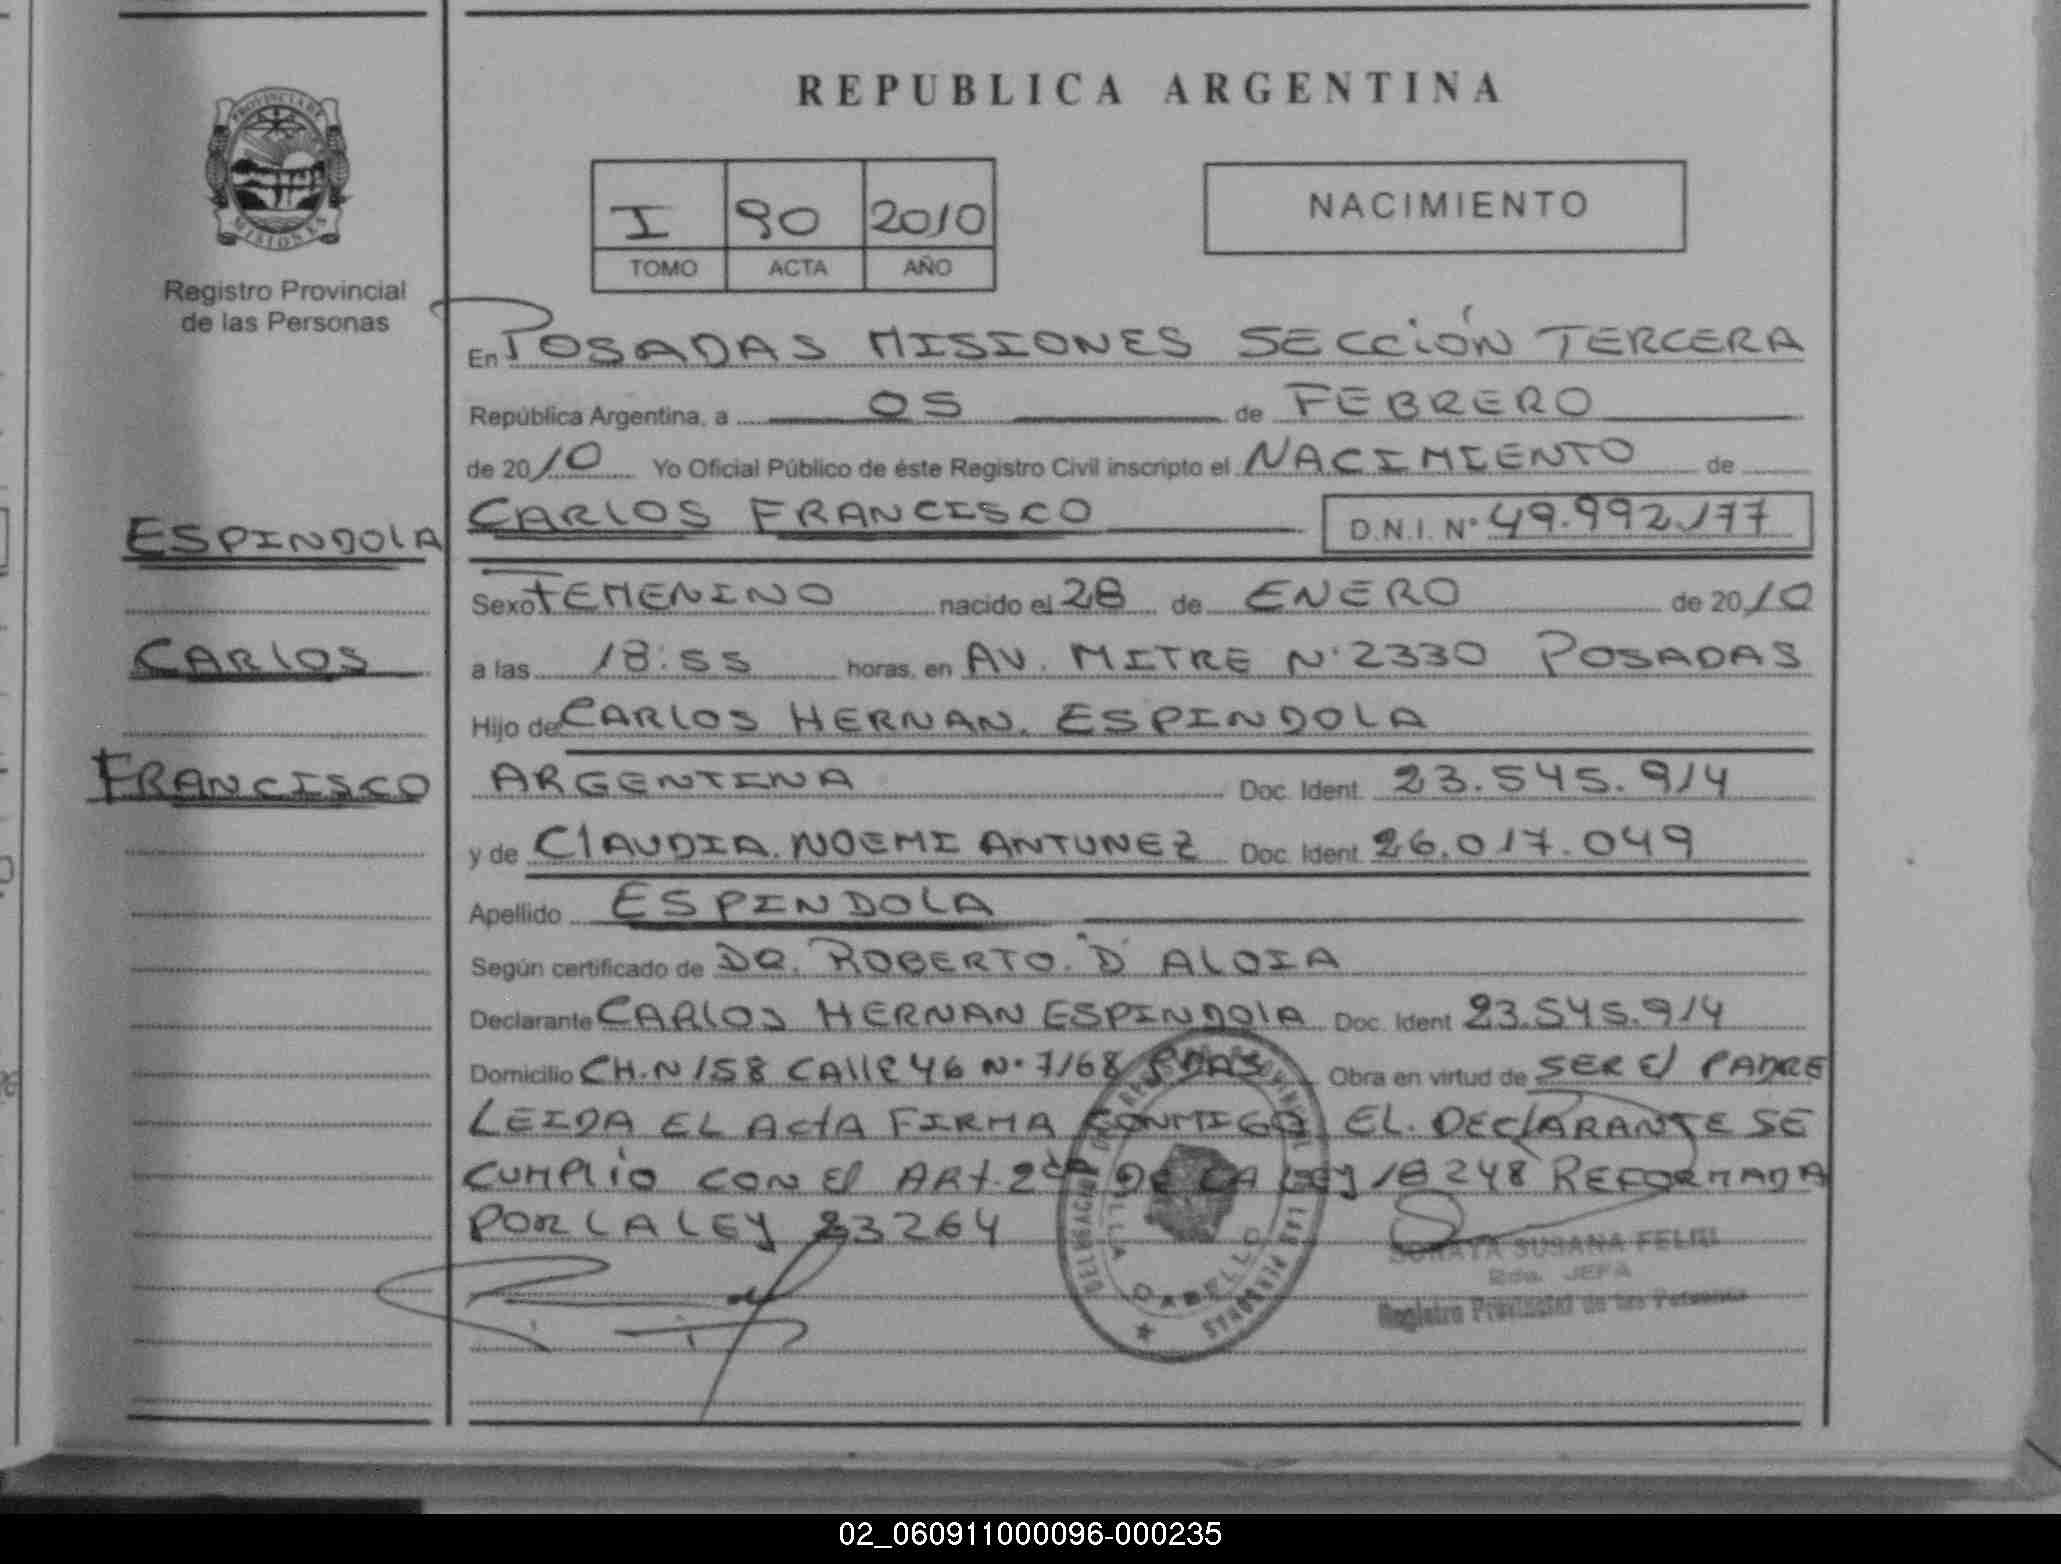 REPUBLICA ARGENTINA
PROVINCIA DE
MISIONES
Registro Provincial
de las Personas
I 90 2010
TOMO ACTA AÑO
NACIMIENTO
En POSADAS MISIONES SECCIÓN TERCERA
República Argentina, a 05 de FEBRERO
de 2010 Yo Oficial Público de éste Registro Civil inscripto el NACIMIENTO de
ESPINDOLA CARLOS FRANCISCO D.N.I. Nº 49.992.177
Sexo FEMENINO nacido el 28 de ENERO de 2010
CARLOS a las 18:55 horas, en AV. MITRE Nº 2330 POSADAS
Hijo de CARLOS HERNAN. ESPINDOLA
FRANCISCO ARGENTINA Doc. Ident. 23.545.914
y de ClAUDIA. NOEMI ANTUNEZ Doc. Ident. 26.017.049
Apellido ESPINDOLA
Según certificado de DR. ROBERTO. D' ALOIA
Declarante CARlOS HERNAN ESPINDOlA Doc. Ident 23.545.914
Domicilio CH.N 158 CAllE 46 Nº 7168 PDAS Obra en virtud de SER El PADRE
LEIDA EL ActA FIRMA CONMIGO EL. DEClARANTE SE
CUMPLIO CON El ARt. 2do DE LA LEY 18248 REFORMADA
POR LA LEY 23264
DELEGACION
VILLA CABELLO
LAS PERSONAS
SORAYA SUSANA FELTRI
2da. JEFA
Registro Provincial de las Personas
02_060911000096-000235